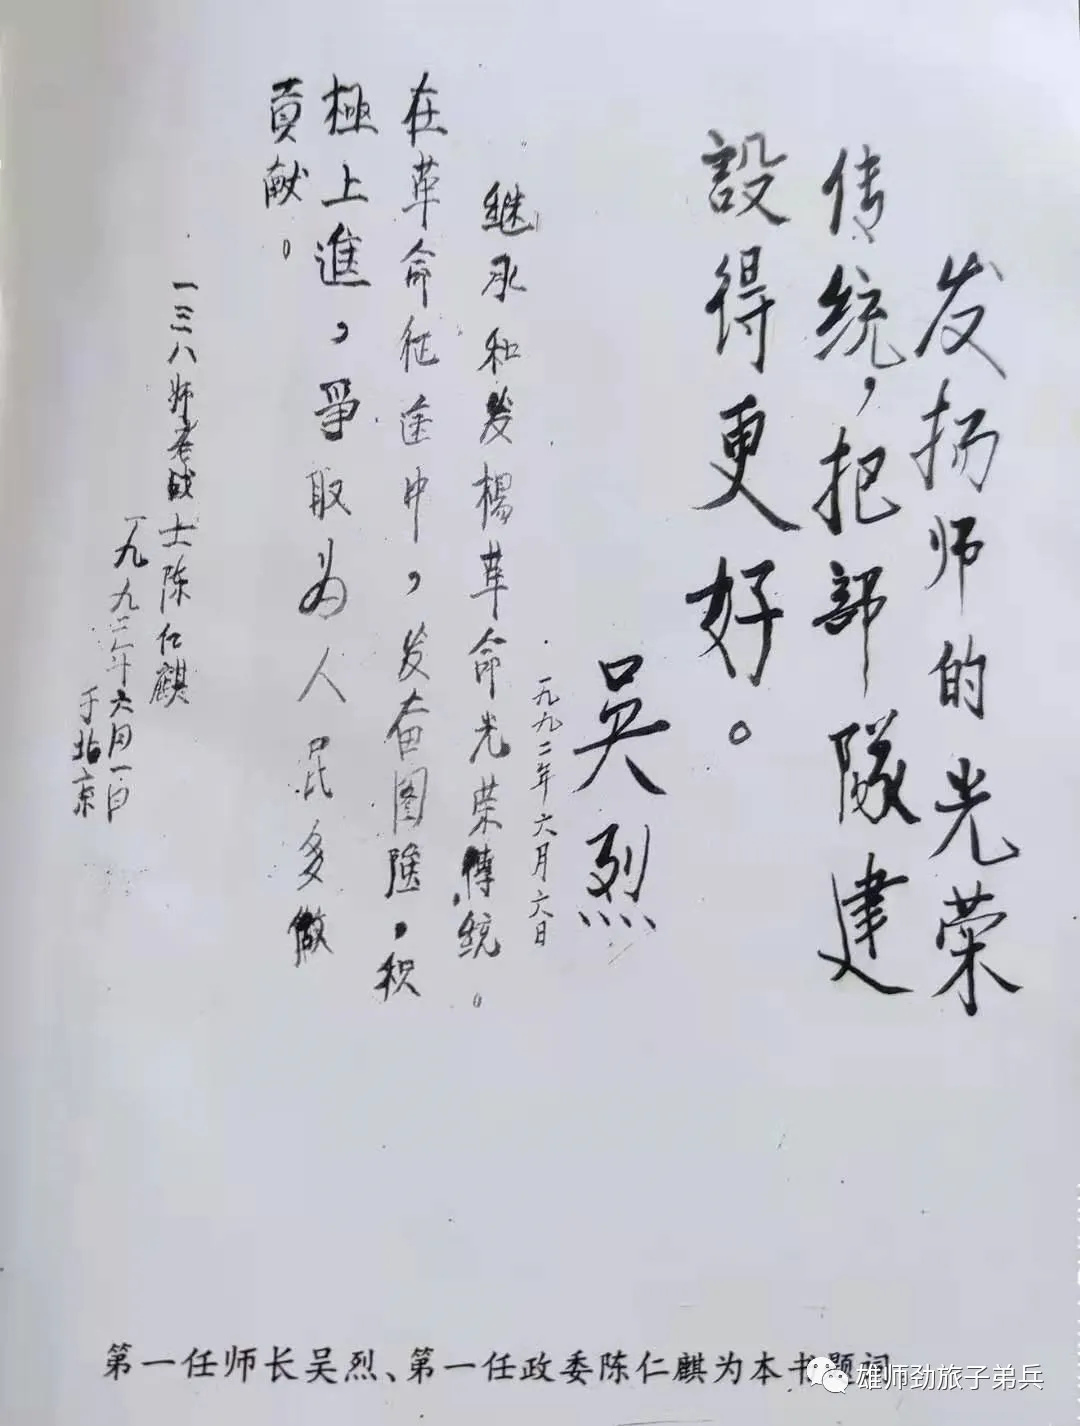 发扬师的光荣
传统，把部隊建
設得更好。
吴烈
一九九二年六月六日
继承和发楊革命光荣傳统。
在革命征途中，发奋图强，积
極上進，爭取为人民多做
貢献。
一三八师老战士陈仁麒
一九九二年六月一日
于北京
第一任师长吴烈、第一任政委陈仁麒为本书题词
雄师劲旅子弟兵